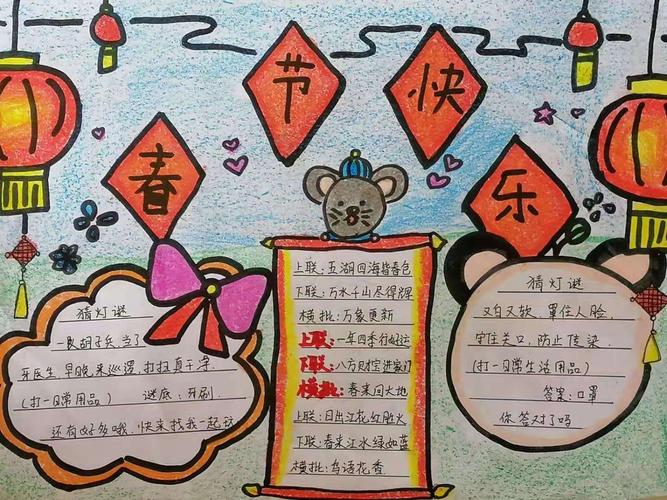 春
节
快
乐
猜灯谜
一根胡子兵当了
牙医生,早晚来巡逻,扫扫真干净.
(打一日常用品) 谜底:牙刷.
还有好多哦,快来找我一起玩
上联:五湖四海皆春色
下联:万水千山尽得辉
横批:万象更新
上联:一年四季行好运
下联:八方财宝进家门
横批:春来回大地
上联:日出江花红胜火
下联:春来江水绿如蓝
横批:鸟语花香
猜灯谜
又白又软,罩住人脸,
守住关口,防止传染.
(打一日常生活用品)
答案:口罩
你答对了吗